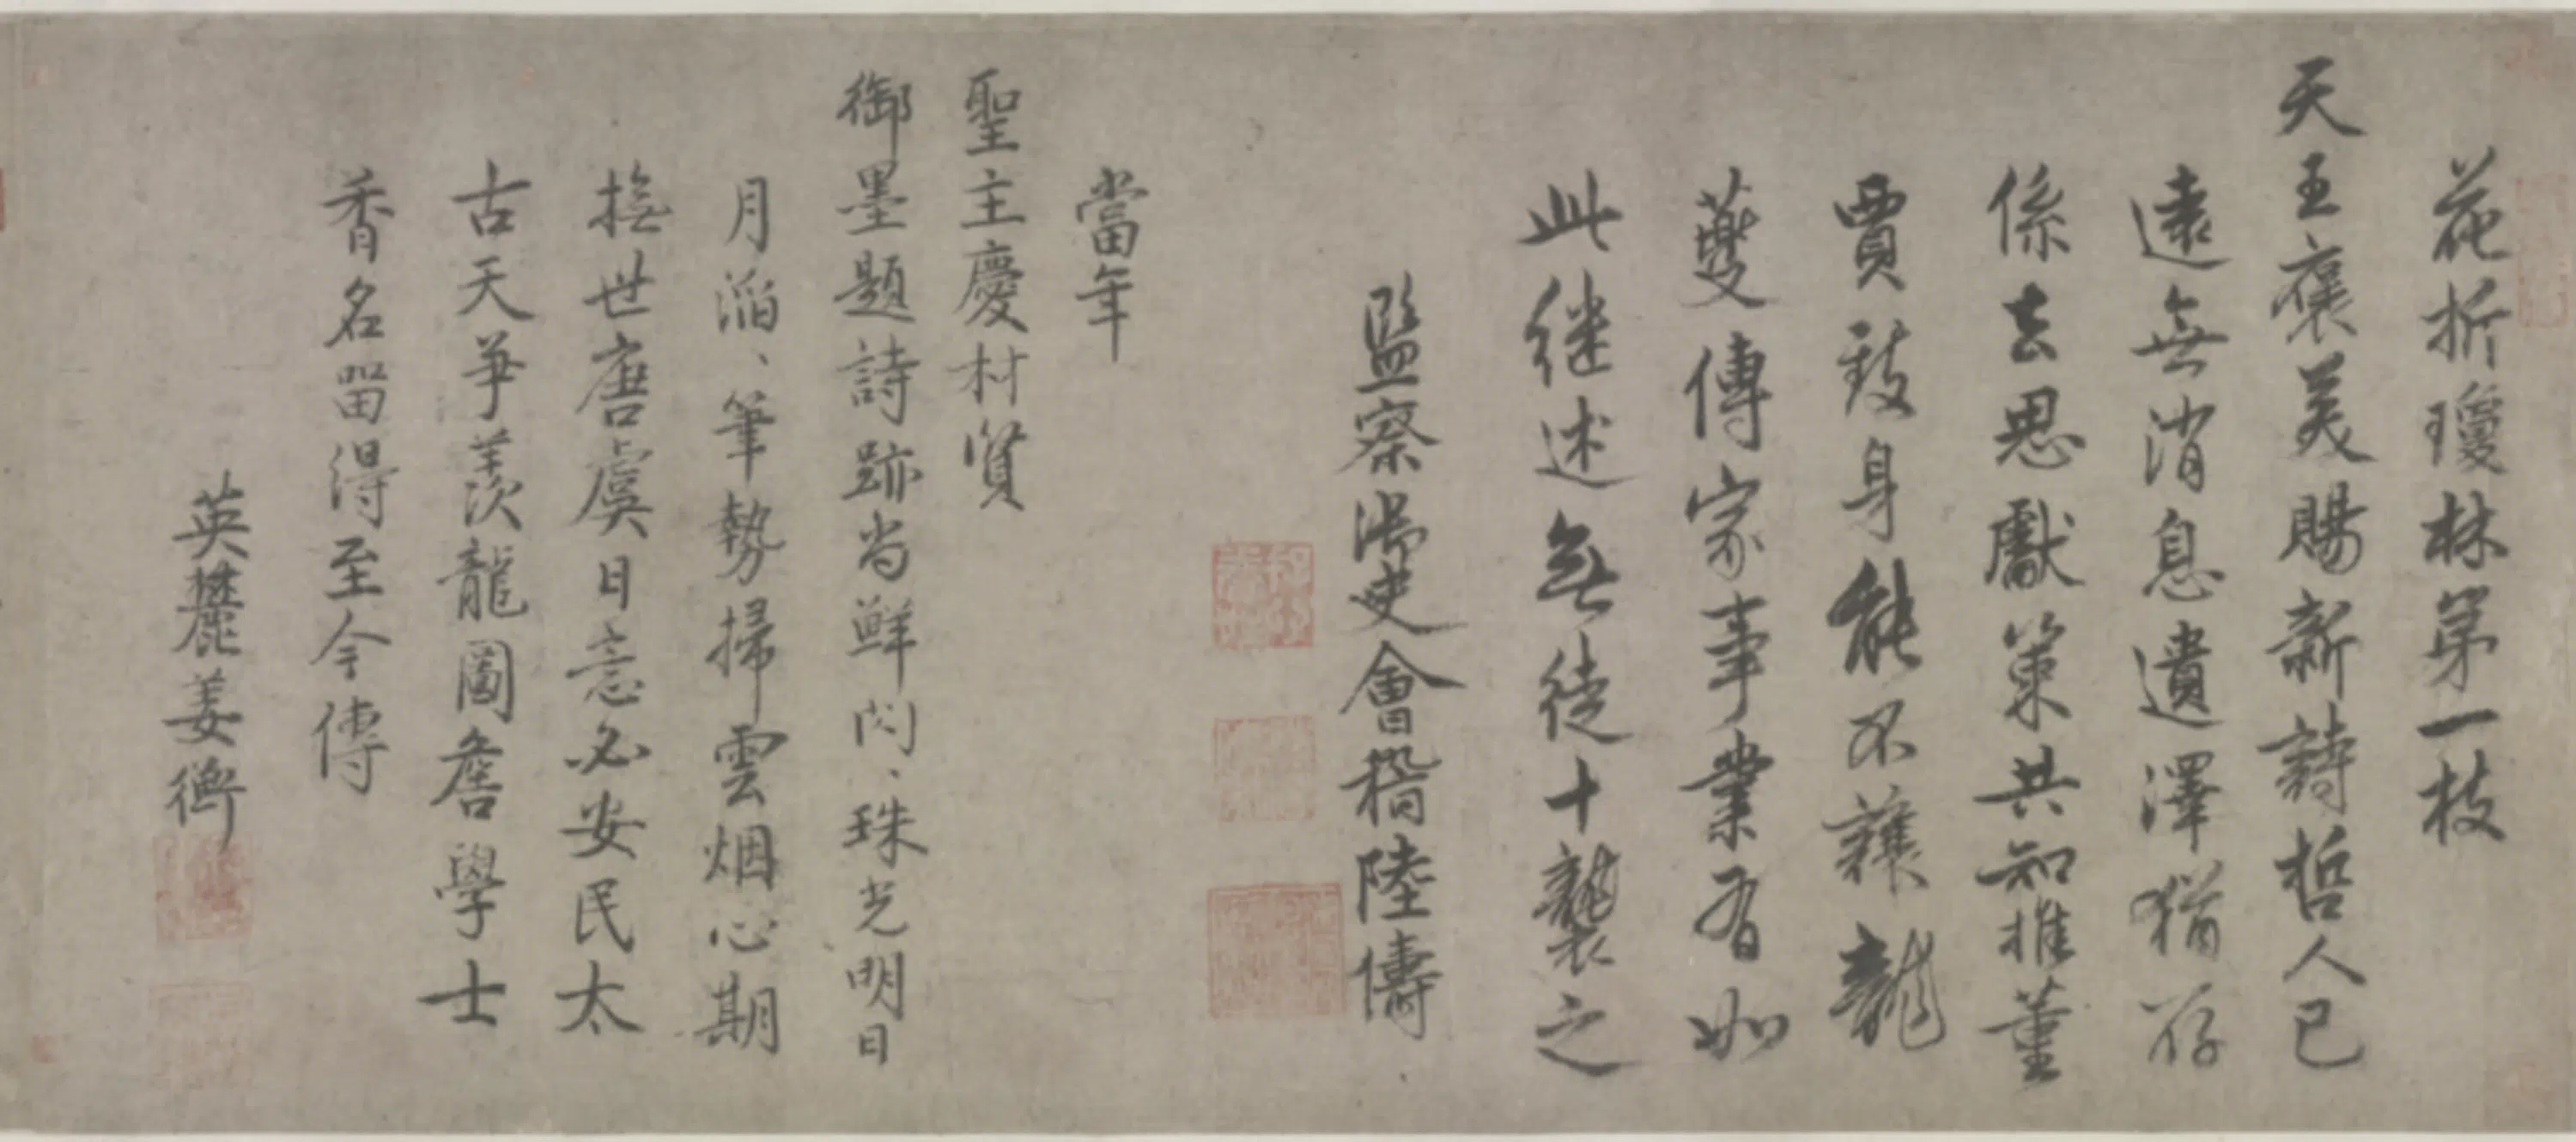 花折瓊林第一枝
天王褒美賜新詩哲人已
遠無消息遺澤猶存
係去思獻策共知推董
賈致身能不讓龍
夔傳家事業有如
此继述無徒十襲之
監察御史會稽陸儔
當年
聖主慶材賢
御墨題詩跡尚鮮闪、珠光明日
月滔、筆勢掃雲烟心期
撫世唐虞日意必安民太
古天爭羡龍圖詹學士
香名畱得至今傳
英麓姜衡